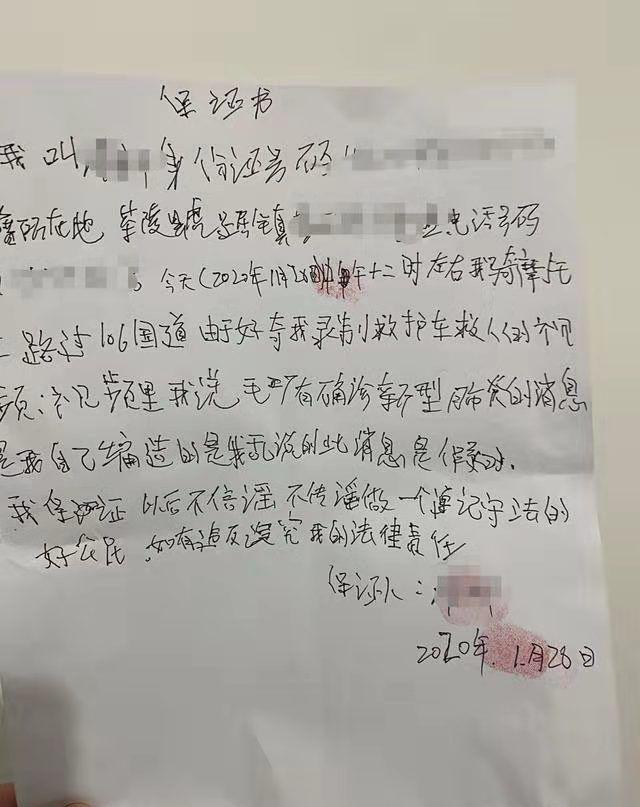 保证书
我叫, 身份证号码
在地 茶陵县虎踞镇 电话号码
今天(2020年1月28日 午十二时左右我骑摩托
路过106国道由于好奇我录制救护车救人的视
频:视频里我说 有确诊新型肺炎的消息
是我自己编造的是我乱说的此消息是假的.
我保证 以后不信谣 不传谣做一个遵纪守法的
好公民.如有违反追究我的法律责任
保证人:
2020年.1月28日